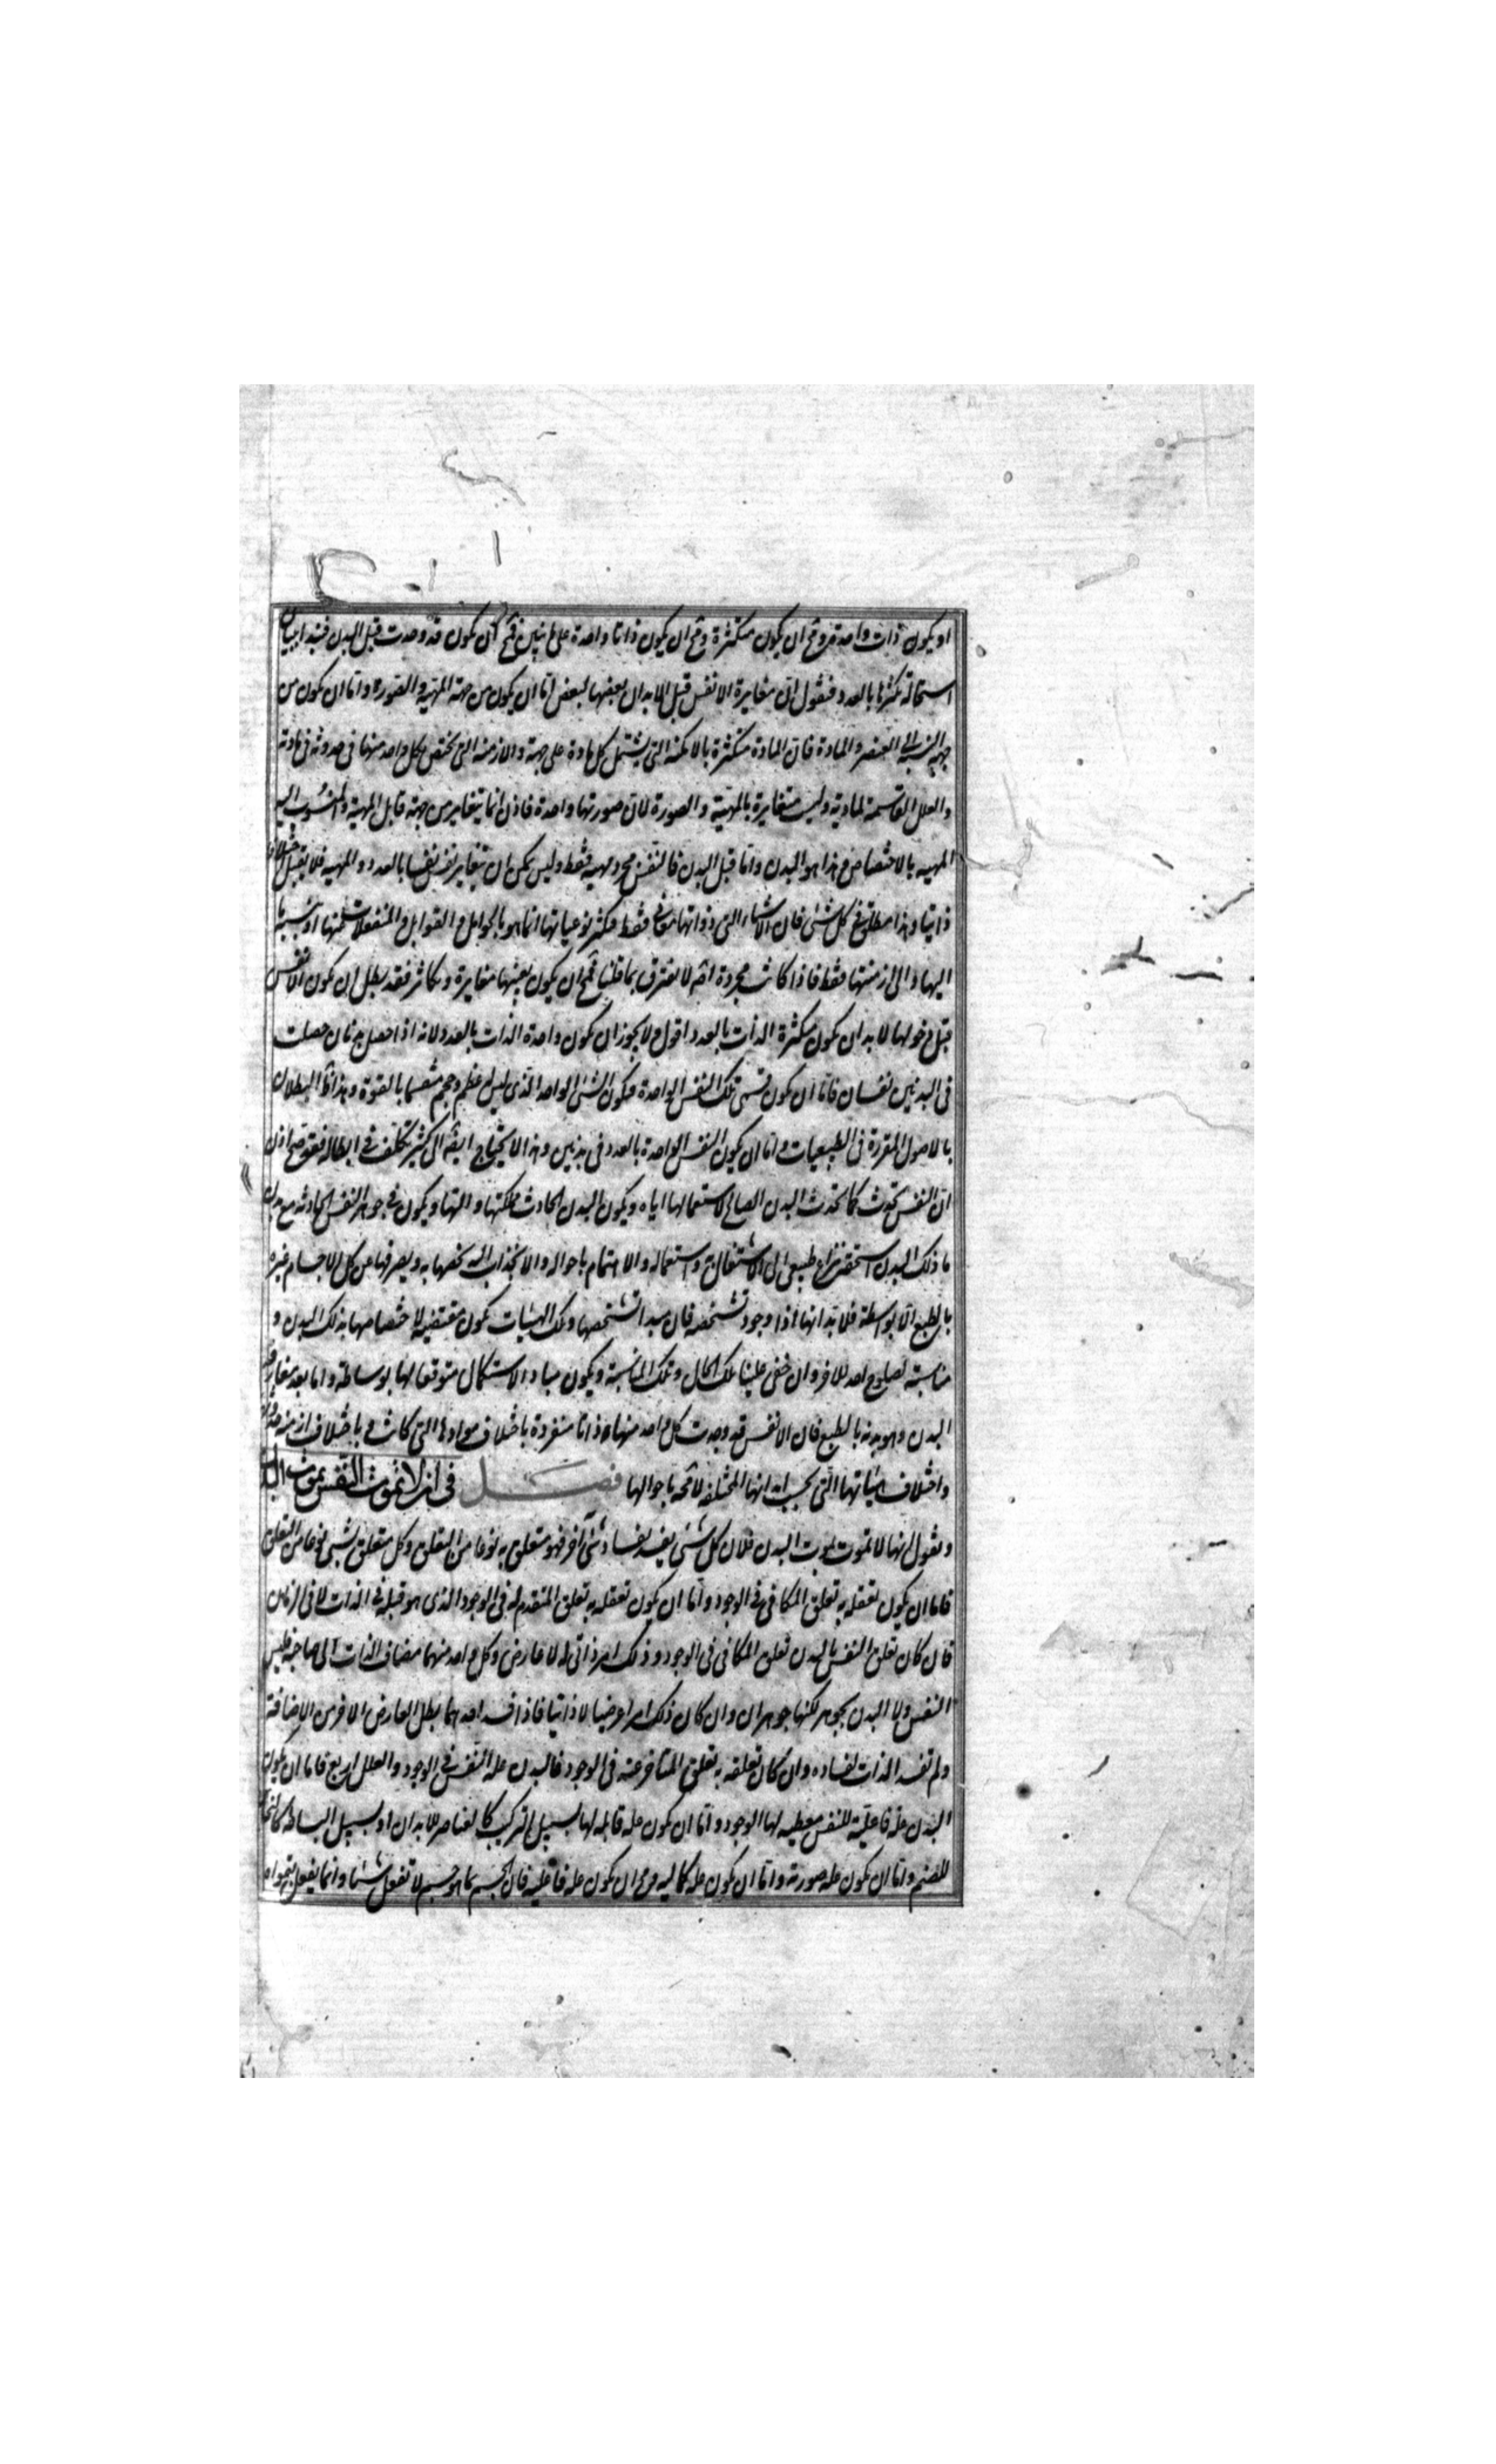 او يكون ذات واحدة ومح ان يكون متكثرة ومح ان يكون ذاتا واحدة على ما يتبين فمح ان يكون قد وجدت قبل البدن فنبدا ببيان
استحالة تكثرها بالعدد فنقول ان مغايرة الانفس قبل الابدان بعضها لبعض اما ان يكون من جهة المهية والصورة واما ان يكون من
جهة النسبة الى العنصر والمادة فان المادة متكثرة بالامكنة التى يشتمل كل مادة على جهة والازمنة التى تختص بكل واحد منها فى حدوثه فى مادته
والعلل القاسمة لمادته وليست متغايرة بالمهية والصورة لان صورتها واحدة فاذن انما يتغاير من جهة قابل المهية والمنسوب اليه
المهية بالاختصاص وهذا هو البدن واما قبل البدن فالنفس مجرد مهية فقط وليس يمكن ان تتغاير نفس نفسا بالعدد والمهية فلا يقبل اختلافا
ذاتيا وهذا مطلق فى كل شئ فان الاشياء التى ذواتها معانى فقط فتكثر نوعياتها انما هو بالحوامل والقوابل والمنفعلات عنها او بنسبة ما
اليها والى ازمنتها فقط فاذا كانت مجردة اصلا لا يفترق بما قلنا فمح ان يكون بينها مغايرة وتكاثر فقد بطل ان يكون الانفس
قبل دخولها الابدان يكون متكثرة الذات بالعدد اقول ولا يجوز ان يكون واحدة الذات بالعدد لانه اذا حصل بدنان حصلت
فى البدنين نفسان فاما ان يكون قسمى تلك النفس الواحدة فيكون الشئ الواحد الذى ليس له عظم وحجم منقسما بالقوة وهذا ظ البطلان
بالاصول المقررة فى الطبيعيات واما ان يكون النفس الواحدة بالعدد فى بدنين وهذا لا يحتاج ايضا الى كثير تكلف فى ابطاله فقد صح اذن
ان النفس تحدث كما تحدث البدن الصالح لاستعمالها اياه ويكون البدن الحادث مملكتها وآلتها ويكون فى جوهر النفس الحادثة مع بدن
ما ذلك البدن استحق نزاع طبيعى الى الاشتغال به واستعماله والاهتمام باحواله والانجذاب اليه يخصها به ويصرفها عن كل الاجسام غيره
بالطبع الا بواسطة فلا بد انها اذا وجود تشخصه فان مبدا تشخصها وتلك الهيئات يكون مقتضية لاختصاصها بذلك البدن و
مناسبة لصلوح احد للاخر وان خفى علينا تلك الحال وتلك المناسبة ويكون مباد الاستكمال متوقعا لها بوساطة واما بعد مفارقة
البدن وهو بدنه بالطبع فان الانفس قد وجدت كل واحد منها ذاتا منفردة باختلاف موادها التى كانت وباختلاف ازمنة حدوثها
واختلاف هيئاتها التى بحسب ابدانها المختلفة لا محة باحوالها فصل فى انه لا تموت النفس بموت البدن
ونقول انها لا تموت بموت البدن فلان كل شئ يفسد بفساد شئ آخر فهو متعلق به نوعا من التعلق وكل متعلق بشئ نوعا من التعلق
فاما ان يكون تعقله به تعلق المكافى فى الوجود واما ان يكون تعقله به تعلق المتقدم له فى الوجود الذى هو قبله فى الذات لا فى الزمان
فان كان تعلق النفس بالبدن تعلق المكافى فى الوجود وذلك امر ذاتى له لا عارض وكل واحد منهما مضاف الذات الى صاحبه فليس
النفس ولا البدن بجوهر لكنهما جوهران وان كان ذلك امرا عرضيا لا ذاتيا فاذا فسد احدهما بطل العارض الاخر من الاضافة
ولم تفسد الذات لفساده وان كان تعلقه به تعلق المتاخر عنه فى الوجود فالبدن علة النفس فى الوجود والعلل اربع فاما ان يكون
البدن علة فاعلية للنفس معطيه لها الوجود واما ان يكون علة قابلة لها بسبيل التركيب كالعناصر للابدان او بسبيل البساطة كالنحاس
للصنم واما ان يكون علة صورية واما ان يكون علة كمالية ومح ان يكون علة فاعلية فان الجسم بما هو جسم لا تفعل شيئا وانما يفعل بقواه